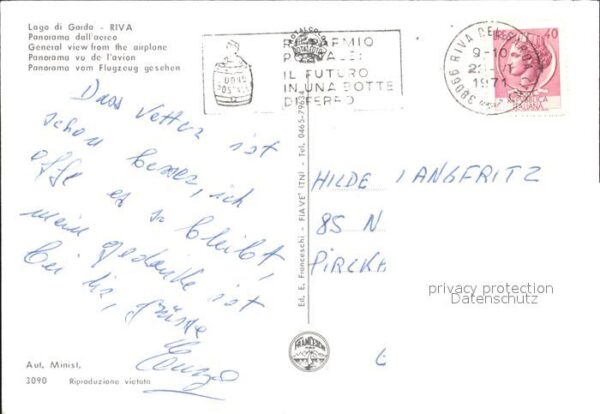 Lago di Garda - RIVA
Panorama dall'aereo
General view from the airplane
Panorama vu de l'avion
Panorama vom Flugzeug gesehen
BUONI
POSTALI
RISPARMIO
POSTALE:
IL FUTURO
IN UNA BOTTE
DI FERRO
38066 RIVA DEL GARDA
9-10
1971
40
REPUBBLICA
ITALIANA
Daas Vetter ist
schon besser, ich
offe es so bleibt,
mein gedanke ist
bei dir, grüsse
Enzo
Ed. E. Franceschi - FIAVE' (TN) - Tel. 0465-
FRANCESCHI
HILDE LANGFRITZ
85 N
PIRCKH
privacy protection
Datenschutz
Aut. Minist.
3090 Riproduzione vietata